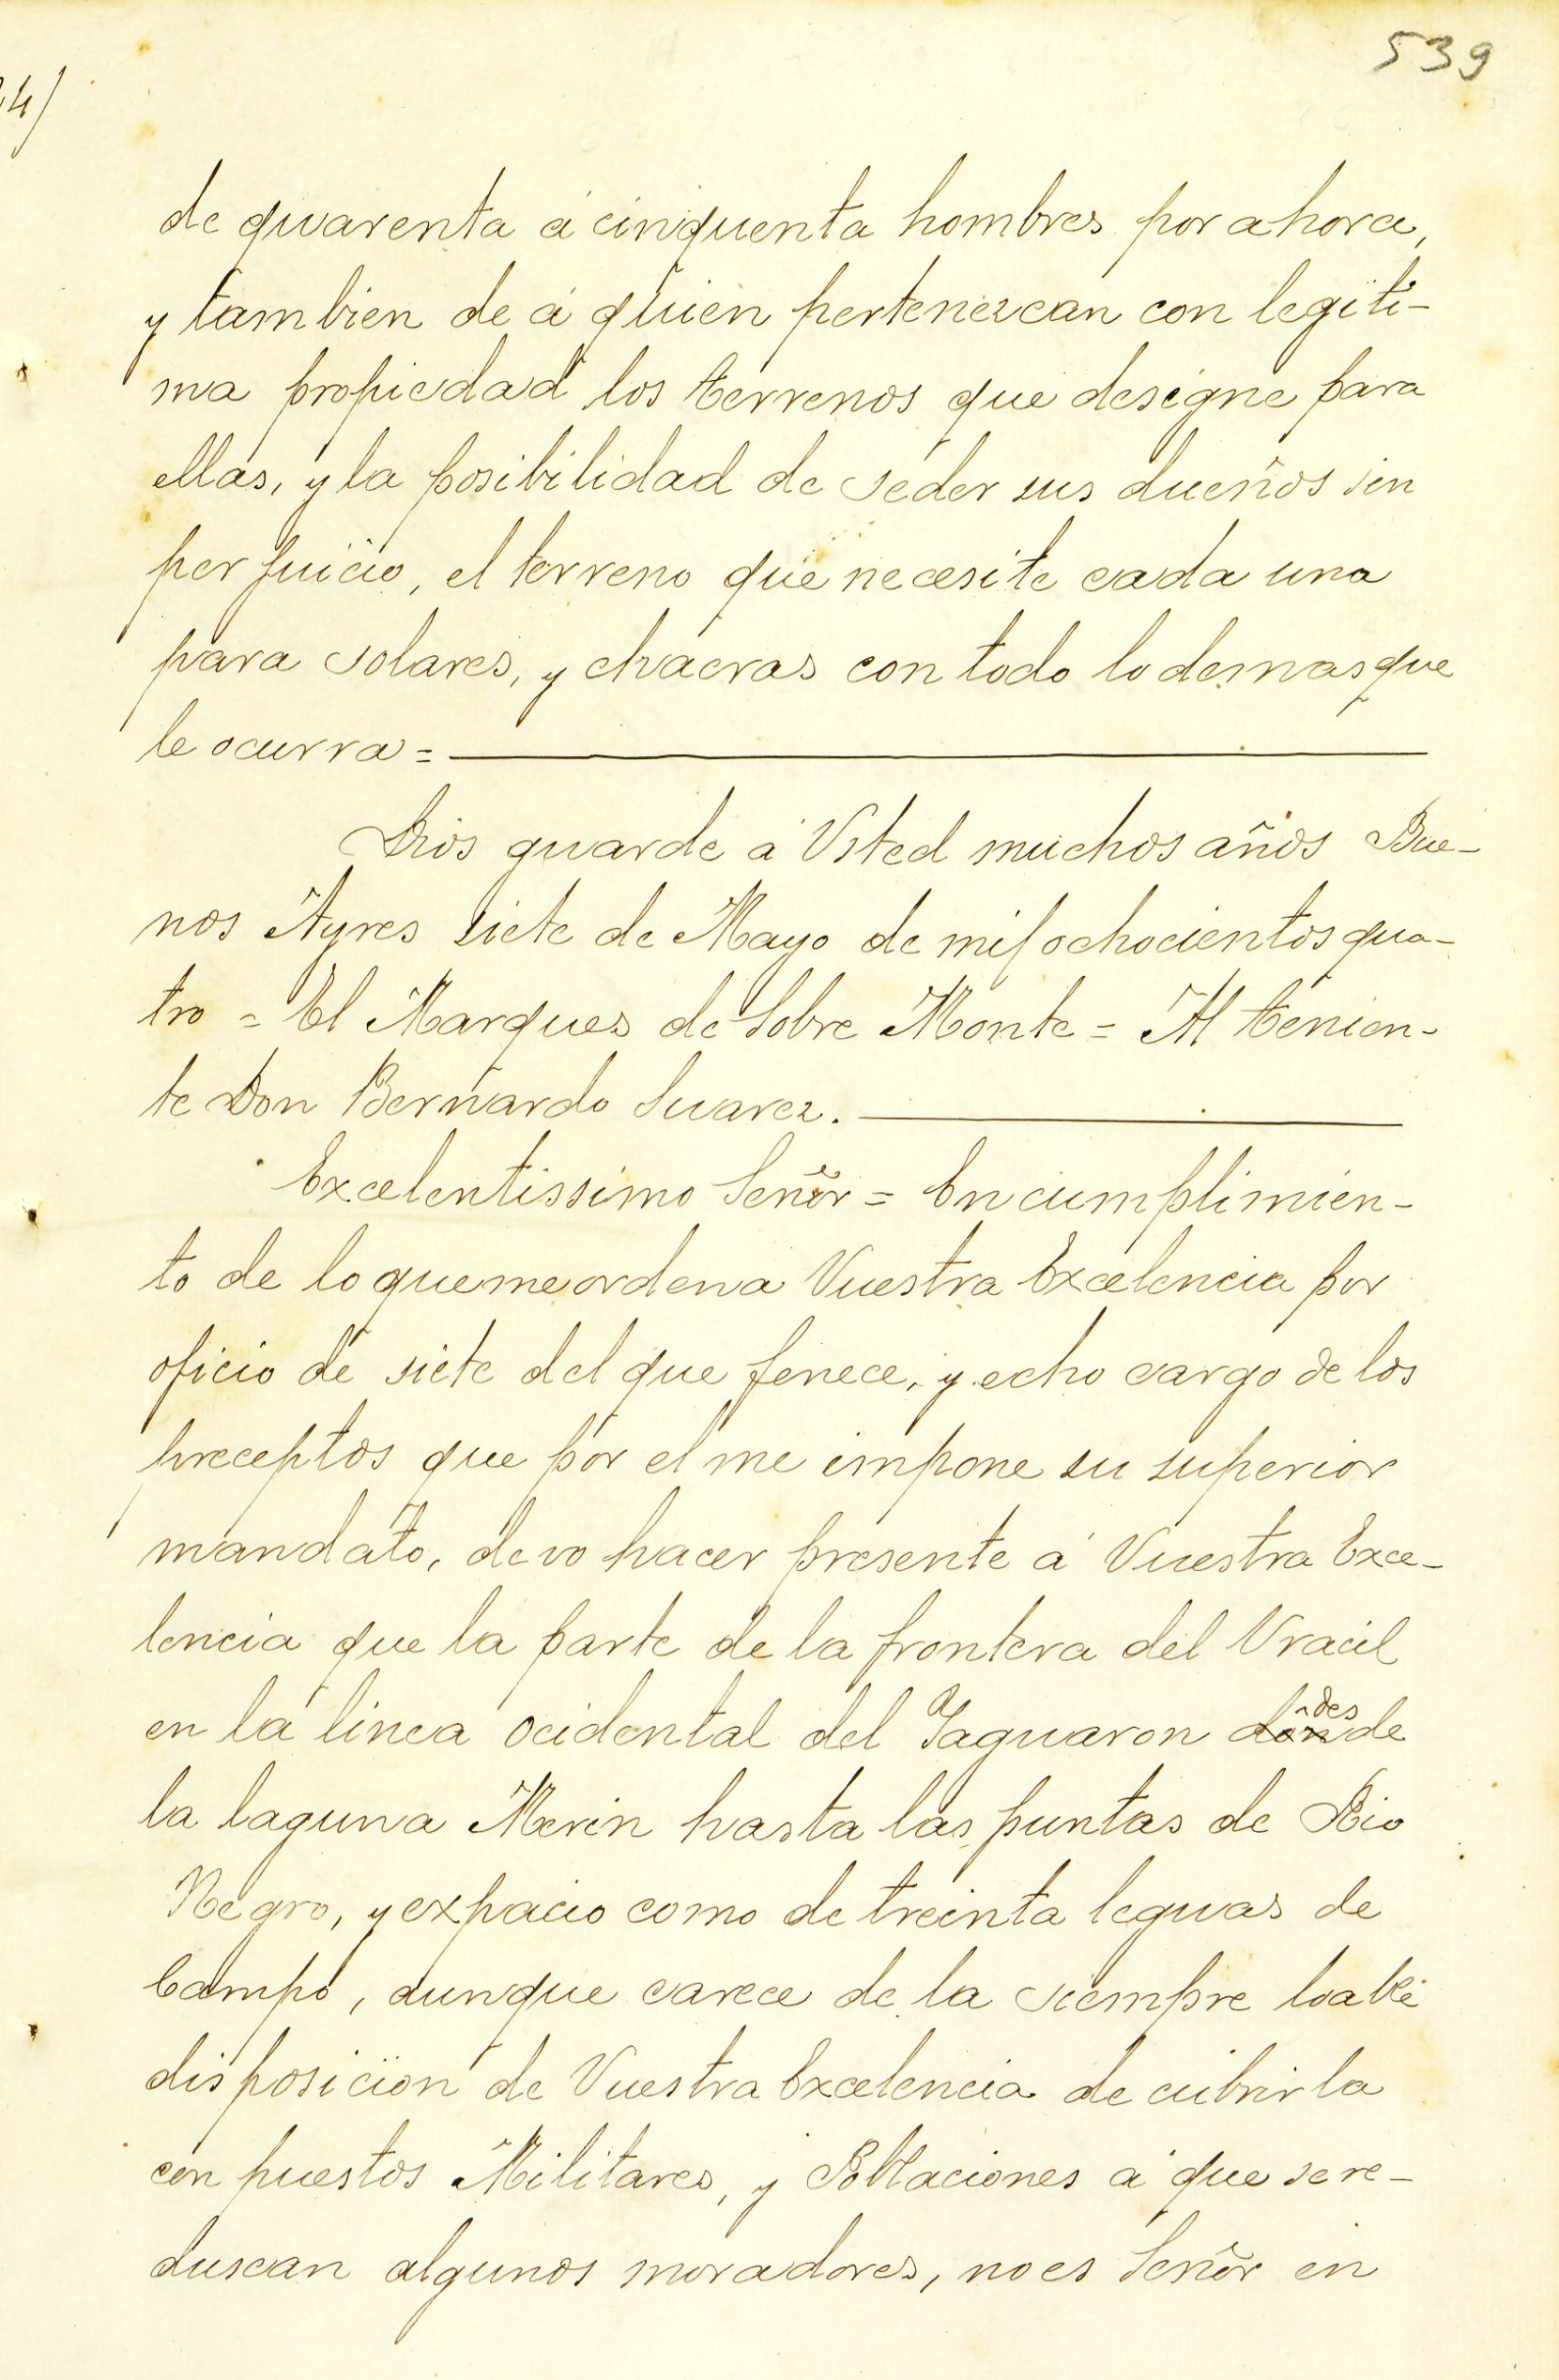 539
4/
de quarenta á cinquenta hombres por ahora,
y tambien de á quien pertenezcan con legiti-
ma propiedad los terrenos que designe para
ellas, y la posibilidad de seder sus dueños sin
perjuicio, el terreno que necesite cada una
para solares, y chacras con todo lo demas que
le ocurra =
Dios guarde á Usted muchos años Bue-
nos Ayres siete de Mayo de mil ochocientos qua-
tro = El Marques de Sobre Monte = Al tenien-
te Don Bernardo Suarez.
Excelentissimo Señor = En cumplimien-
to de lo que me ordena Vuestra Excelencia por
oficio de siete del que fenece, y echo cargo de los
preceptos que por el me impone su superior
mandato, devo hacer presente á Vuestra Exce-
lencia que la parte de la frontera del Vracil
en la linea ocidental del Yaguaron desde
la laguna Merin hasta las puntas de Rio
Negro, y expacio como de treinta leguas de
Campo, aunque carece de la siempre loable
disposicion de Vuestra Excelencia de cubrirla
con puestos Militares, y Poblaciones á que se re-
duscan algunos moradores, no es Señor en